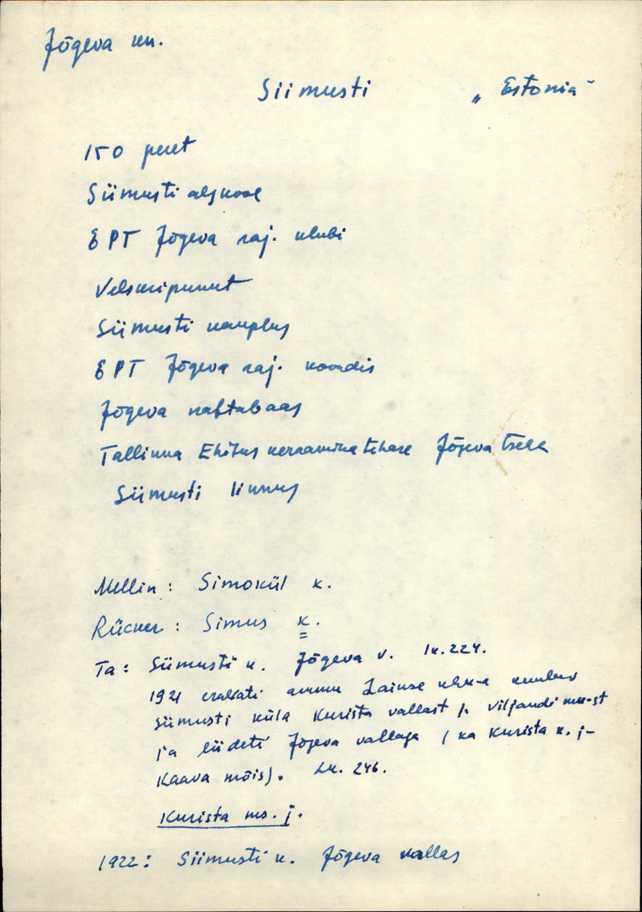 Jõgeva kn.
Siimusti „Estonia"
150 peret
Siimusti algkool
EPT Jõgeva raj. klubi
Velskripunkt
Siimusti kauplus
EPT Jõgeva raj. koondis
Jõgeva naftabaas
Tallinna Ehituskeraamikatehase Jõgeva tsehh
Siimusti linnus
Mellin: Simokül k.
Rücker: Simus k.
Ta: Siimusti k. Jõgeva v. lk. 224.
1921 eraldati Laiuse khk-a kuuluv
Siimusti küla Kurista vallast ja Viljandi mk-st
ja liideti Jõgeva vallaga (ka Kurista k. j-
Kaava mõis). Lk. 246.
Kurista ms. j.
1922: Siimusti k. Jõgeva vallas